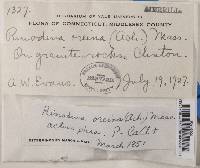 1327.
HERBARIUM OF YALE UNIVERSITY
FLORA OF CONNECTICUT, MIDDLESEX COUNTY
Rinodina oreina (Ach.) Mass.
On granite rocks Clinton.
A. W. Evans. July 19, 1927.
Rinodina oreina (Ach.) Mass.
P. Catt
March 1951